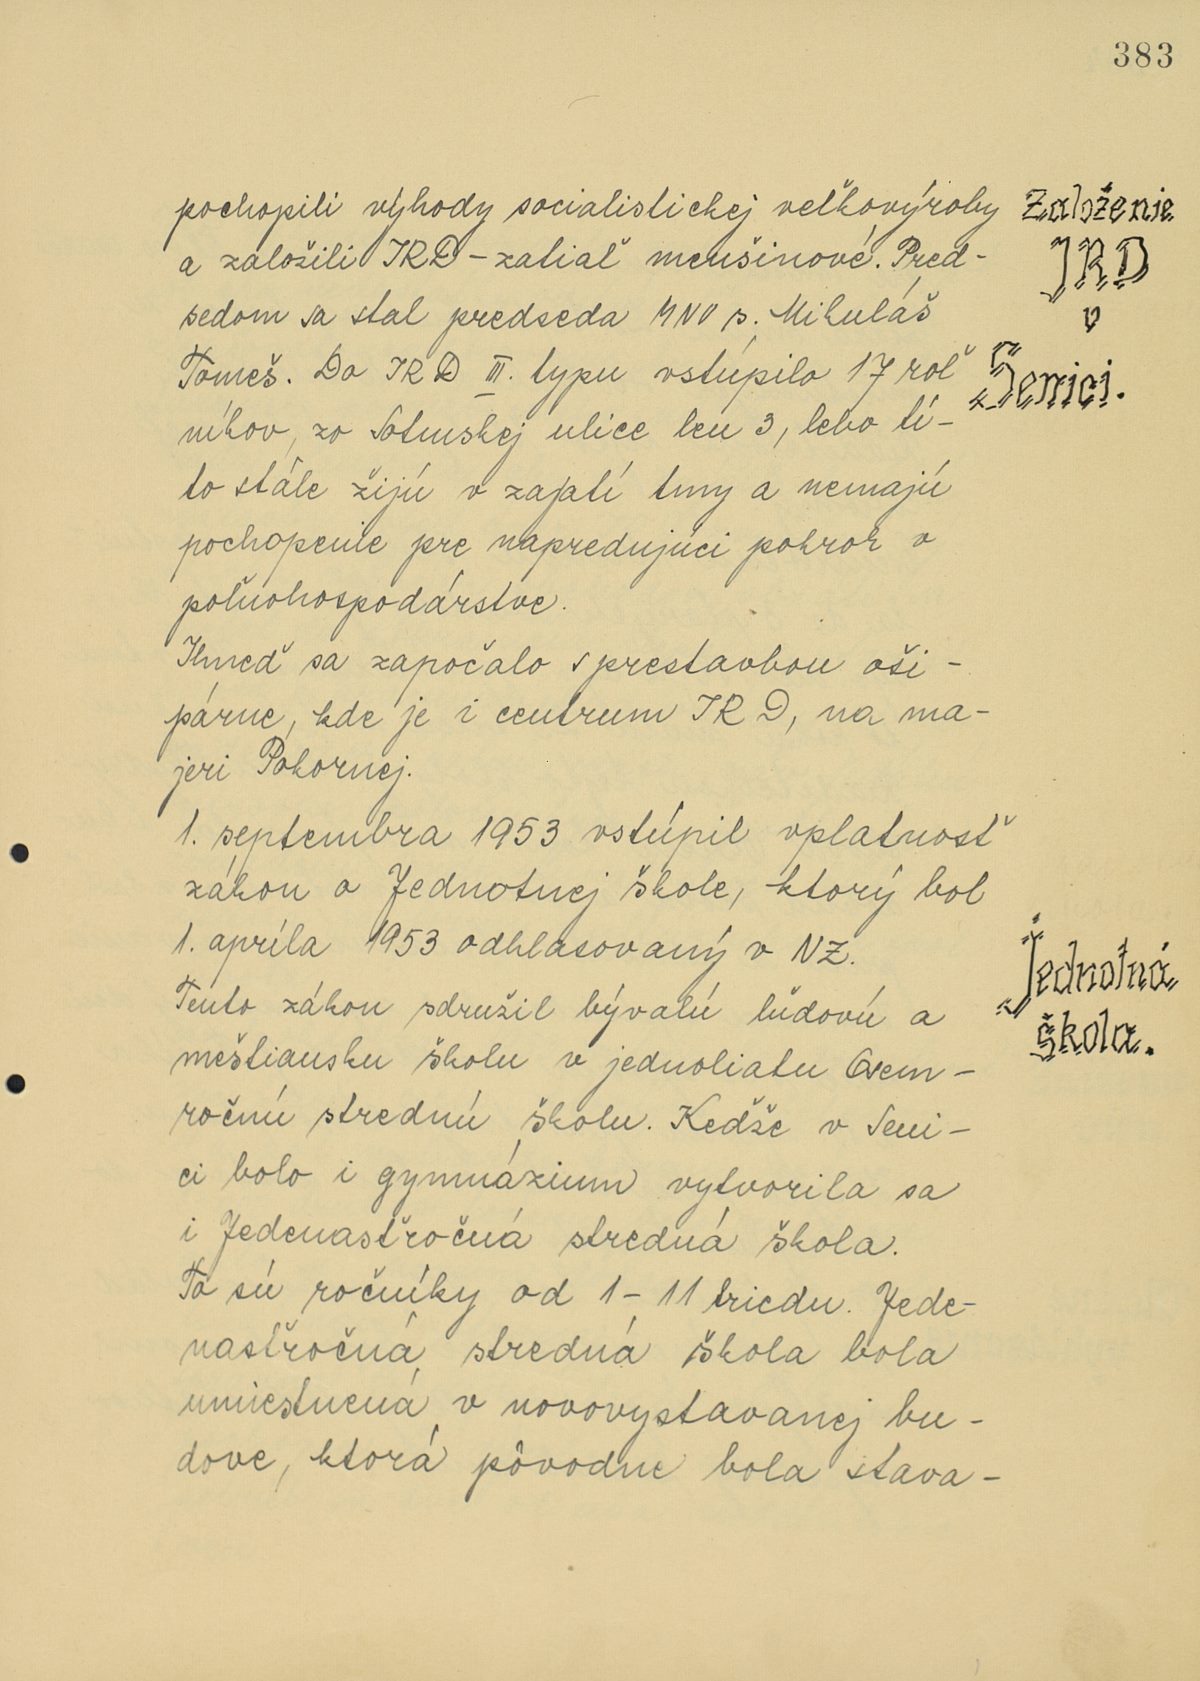 383
pochopili výhody socialistickej veľkovýroby
a založili JRD – zatiaľ menšinové. Pred-
sedom sa stal predseda MNV s. Mikuláš
Tomeš. Do JRD III. typu vstúpilo 17 roľ
níkov, zo Sotinskej ulice len 3, lebo tí-
to stále žijú v zajatí tmy a nemajú
pochopenie pre napredujúci pokrok v
poľnohospodárstve.
Ihneď sa započalo s prestavbou oši-
párne, kde je i centrum JRD, na ma-
jeri Pokornej.
1. septembra 1953 vstúpil vplatnosť
zákon o Jednotnej škole, ktorý bol
1. apríla 1953 odhlasovaný v NZ.
Tento zákon sdružil bývalú ľudovú a
meštiansku školu v jednoliatu Osem-
ročnú strednú školu. Kedže v Seni-
ci bolo i gymnázium vytvorila sa
i Jedenasťročná stredná škola.
To sú ročníky od 1 – 11 triedu. Jede-
nasťročná stredná škola bola
umiestnená v novovystavanej bu-
dove, ktorá pôvodne bola stava-
Založenie
JRD
v
Senici.
Jednotná
škola.